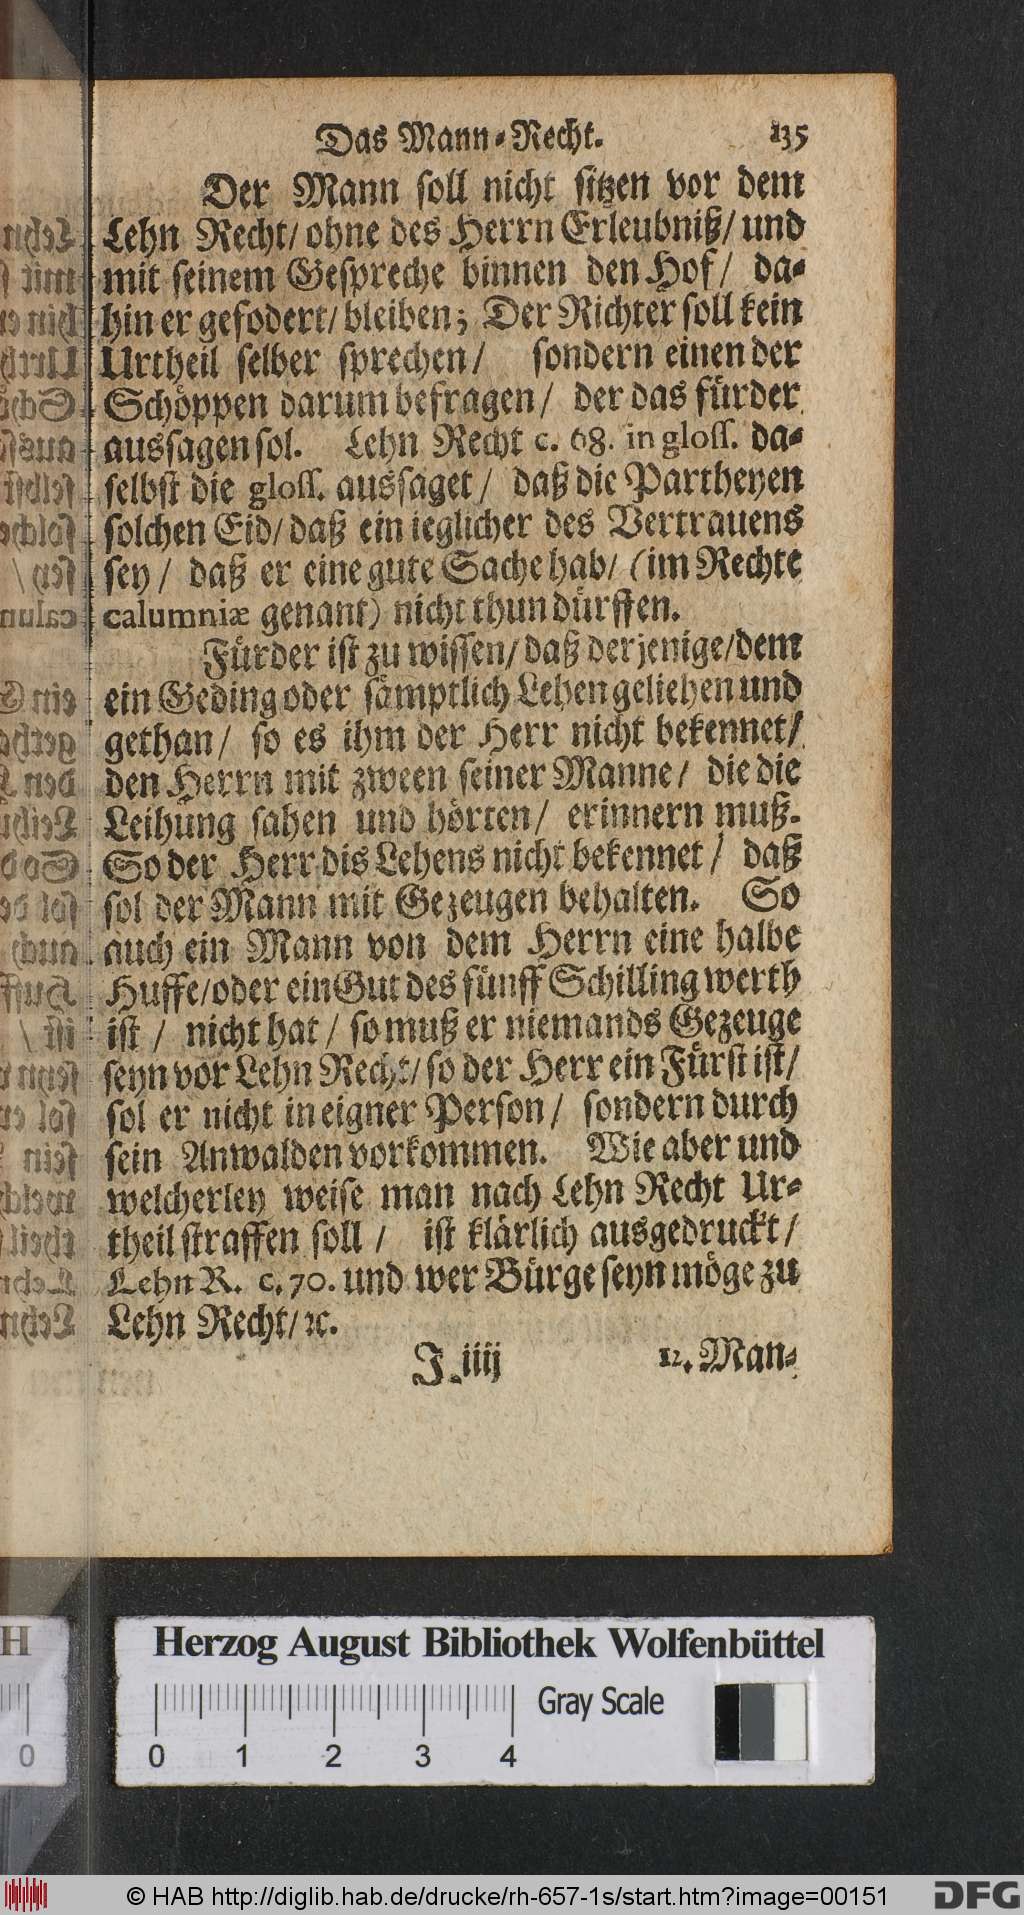 Das Mann-Recht. 135
Der Mann soll nicht sitzen vor dem
Lehn Recht/ ohne des Herrn Erleubniß/ und
mit seinem Gespreche binnen den Hof/ da-
hin er gefodert/ bleiben; Der Richter soll kein
Urtheil selber sprechen/ sondern einen der
Schöppen darum befragen/ der das fürder
aussagen sol. Lehn Recht c. 68. in gloss. da-
selbst die gloss. aussaget/ daß die Partheyen
solchen Eid/ daß ein ieglicher des Vertrauens
sey/ daß er eine gute Sache hab/ (im Rechte
calumniæ genant) nicht thun dürffen.
Fürder ist zu wissen/ daß derjenige/ dem
ein Geding oder sämptlich Lehen geliehen und
gethan/ so es ihm der Herr nicht bekennet/
den Herrn mit zween seiner Manne/ die die
Leihung sahen und hörten/ erinnern muß.
So der Herr dis Lehens nicht bekennet/ daß
sol der Mann mit Gezeugen behalten. So
auch ein Mann von dem Herrn eine halbe
Huffe/ oder ein Gut des fünff Schilling werth
ist/ nicht hat/ so muß er niemands Gezeuge
seyn vor Lehn Recht/ so der Herr ein Fürst ist/
sol er nicht in eigner Person/ sondern durch
sein Anwalden vorkommen. Wie aber und
welcherley weise man nach Lehn Recht Ur-
theil straffen soll/ ist klärlich ausgedruckt/
Lehn R. c. 70. und wer Bürge seyn möge zu
Lehn Recht/ ꝛc.
J iiij 12. Man-
Herzog August Bibliothek Wolfenbüttel
0 1 2 3 4 Gray Scale
H
0
© HAB http://diglib.hab.de/drucke/rh-657-1s/start.htm?image=00151
DFG